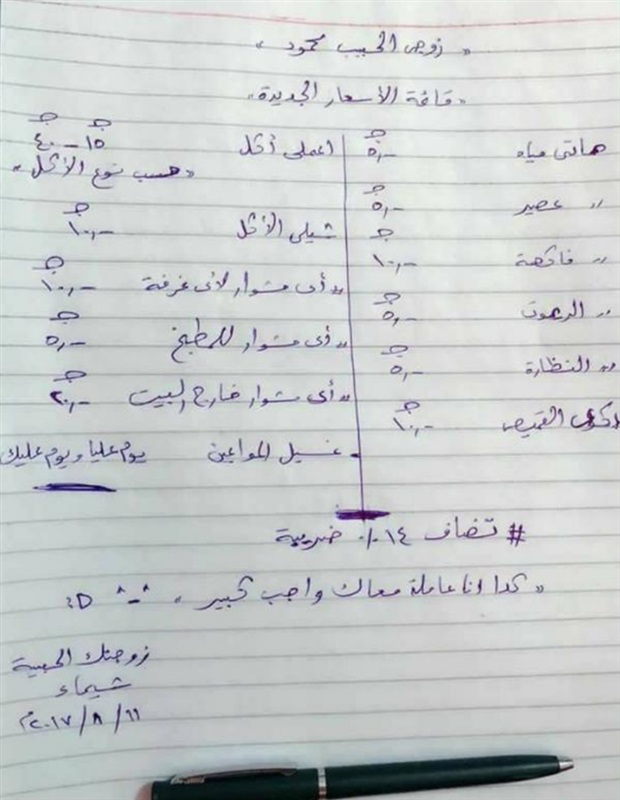 « زوجى الحبيب محمود »
« قائمة الأسعار الجديدة »
هاتى مياه ٥,-- ج
〃 عصير ٥,-- ج
〃 فاكهة ١٠,-- ج
〃 الريموت ٥,-- ج
〃 النظارة ٥,-- ج
اكوى القميص ١٠,-- ج
اعملى أكل ١٥ ج -- ٤٠ ج
« حسب نوع الأكل »
شيلى الأكل ١٠,-- ج
〃 أى مشوار لأى غرفة ١٠,-- ج
〃 أى مشوار للمطبخ ٥,-- ج
〃 أى مشوار خارج البيت ٢٠,-- ج
- غسيل المواعين يوم عليا ويوم عليك
# تضاف ١٤٪ ضريبة
« كدا انا عاملة معاك واجب كبير » ^-^ :D
زوجتك الحبيبة
شيماء
١١/٨/٢٠١٧م